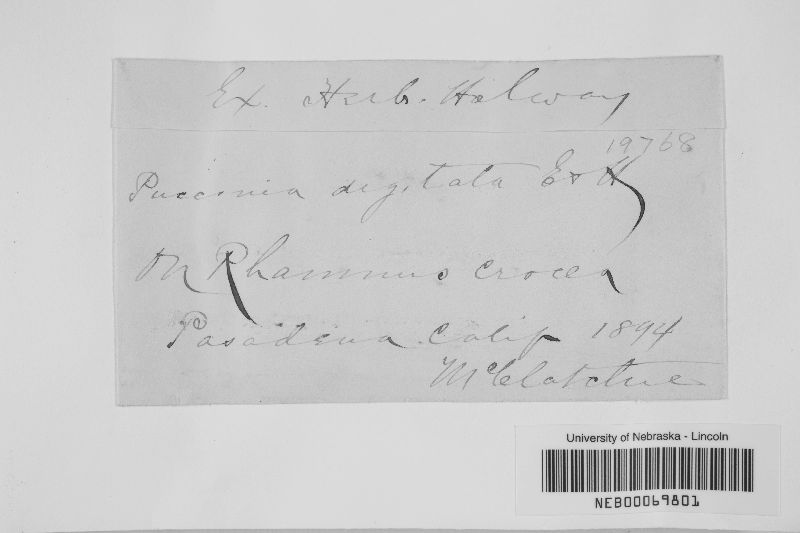 Ex. Herb. Holway
19768
Puccinia digitata E & H
On Rhamnus crocea
Pasadena Calif 1894
McClatchie
University of Nebraska - Lincoln
NEB00069801